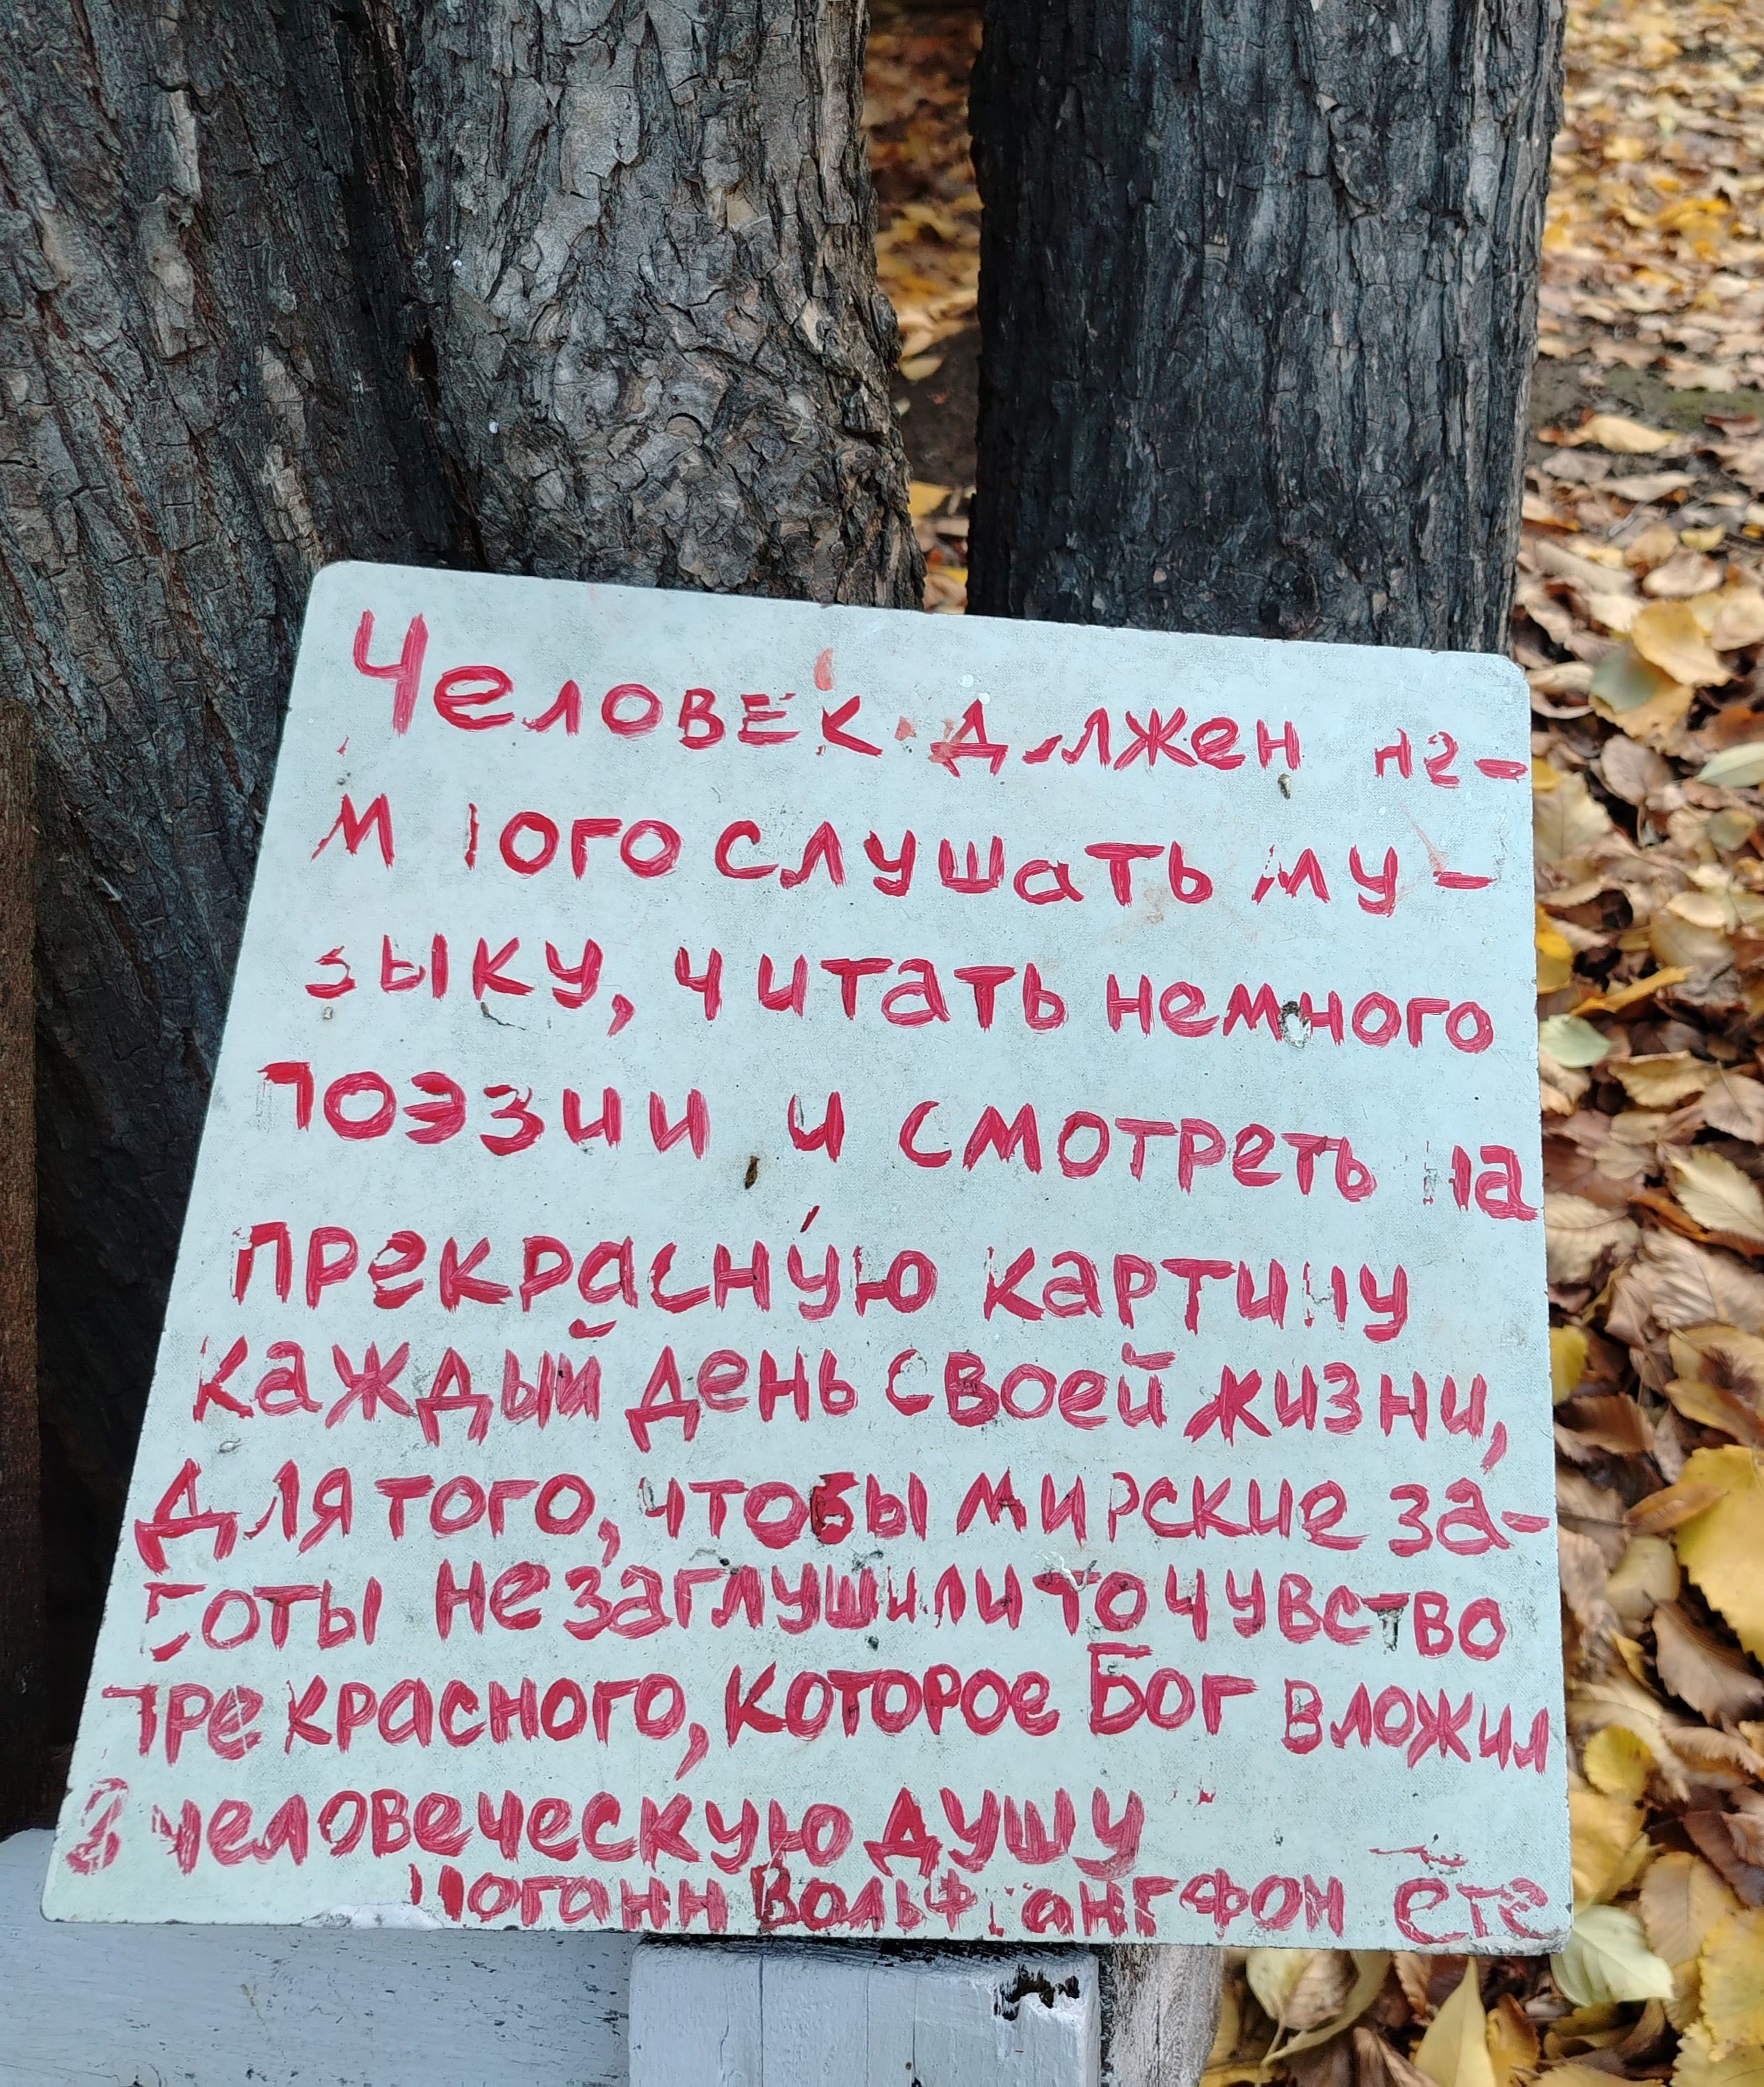 Человек должен не-
много слушать му-
зыку, читать немного
поэзии и смотреть на
прекрасную картину
каждый день своей жизни,
для того, чтобы мирские за-
боты не заглушили то чувство
прекрасного, которое Бог вложил
в человеческую душу
Иоганн Вольфганг фон Гёте